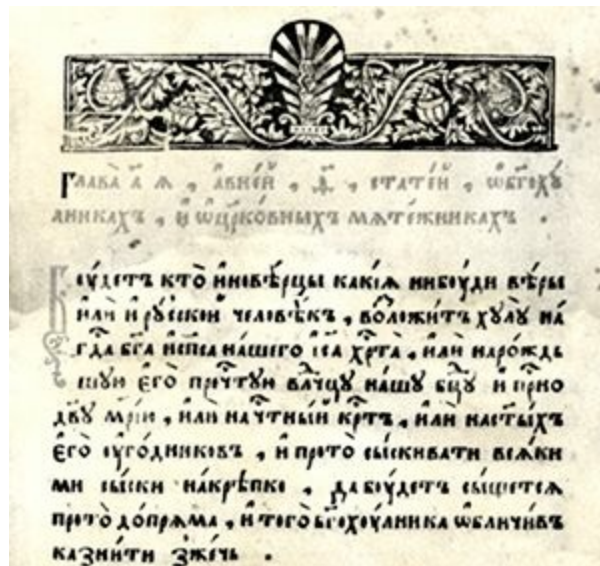 Глава̀ а҃ я , а҆ в не́й , ѳ҃ , стате́й , ѡ҆ бг҃охꙋ́
лникахъ , и҆ ѡ҆ цр҃ко́вныхъ мѧте́жникахъ .
Бꙋ́детъ кто̀ и҆новѣ́рцы какі́ѧ нибꙋди вѣ́ры
и҆лѝ и҆ рꙋ́сскои человѣ́къ , воз̾ложи́тъ хꙋлꙋ̀ на́
гд҇а бг҃а и҆ сп҃са на́шего і҆с҃а хр҇та̀ , и҆лѝ на ро́ждь
шꙋю є҆го̀ преч҇тꙋю влⷣчцꙋ на́шꙋ бц҃ꙋ и҆ при҇но
дв҃ꙋ мр҃і́ю , и҆лѝ на ч҇тны́и кр҇тъ , и҆лѝ на ст҃ы́хъ
є҆го̀ ᲂуго́дниковъ , и҆ про то̀ сы́скивати всѧ́ки
ми сы́ски на́крѣпко , да бꙋ́детъ сы́щетсѧ
про то̀ до́прѧма , и҆ того̀ бг҃охꙋ́лника ѡ҆бличи́въ
казни́ти зже́чь .